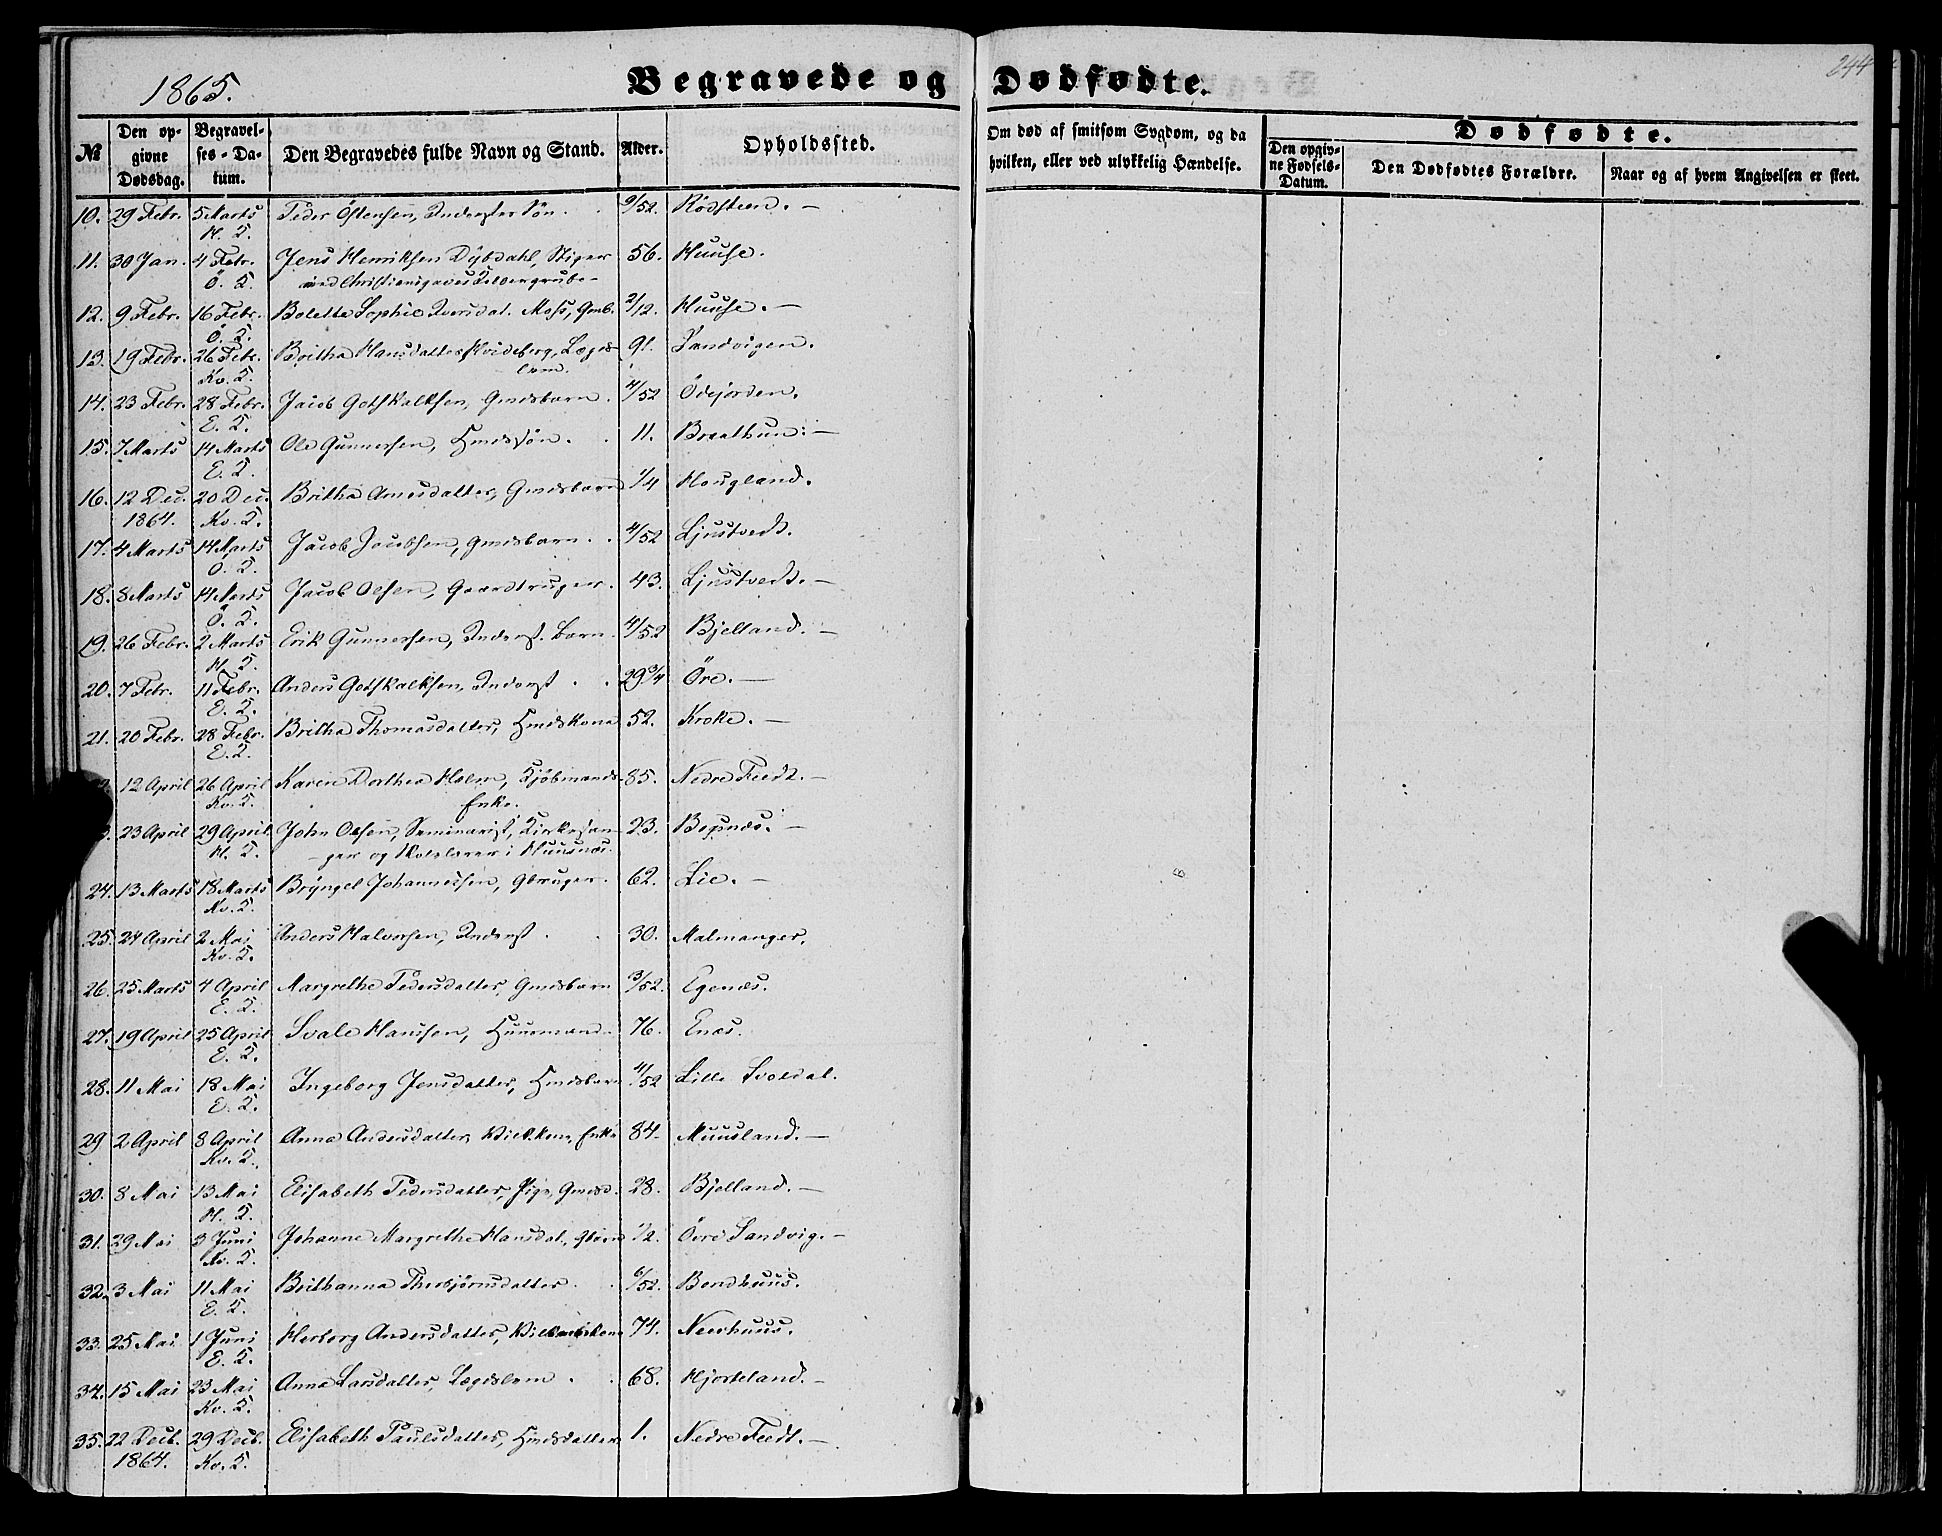 1865.
Begravede og Dødfødte.
244
№
Den op-
givne
Dødsdag.
Begravel-
ses-Da-
tum.
Den Begravedes fulde Navn og Stand.
Alder.
Opholdssted.
Om død af smitsom Sygdom, og da
hvilken, eller ved ulykkelig Hændelse.
Dødfødte.
Den opgiv-
ne Fødsels-
Datum.
Den Dødfødtes Forældre.
Naar og af hvem Angivelsen er skeet.
10. 29 Febr. 5 Marts Peder Östensen, Inderster Sön. 9/52. Rödsteen. —
H. K.
11. 30 Jan. 4 Febr. Jens Henriksen Dybdahl, Stiger 56. Huuse.
Ö. K. ved Christiansgaves Kobbergrube
12. 9 Febr. 16 Febr. Bolette Sophie Iversdat. Moss, Gmb. 2/12. Huuse. —
Ö. K.
13. 19 Febr. 26 Febr. Britha Hansdatter Kvideberg, Lægds- 91. Sandvigen.
Kv. K. lem.
14. 23 Febr. 28 Febr. Jacob Gotskalksen, Gmdsbarn. 4/52 Ödejorden.
E. K.
15. 7 Marts 14 Marts Ole Gunnersen, Hmdssön. 11. Braathun. —
E. K.
16. 12 Dec. 20 Dec. Britha Arnesdatter, Gmdsbarn 1/4 Hougland.
1864. Kv. K.
17. 4 Marts 14 Marts Jacob Jacobsen, Gmdsbarn. 4/52 Ljustvedt.
Ö. K.
18. 8 Marts 14 Marts Jacob Olsen, Gaardbruger. 43. Ljustvedt. —
Ö. K.
19. 26 Febr. 2 Marts Erik Gunnersen, Inderst. Barn. 4/52 Bjelland. —
H. K.
20. 7 Febr. 11 Febr. Anders Gotskalksen, Inderst 29 3/4 Öre. —
E. K.
21. 20 Febr. 28 Febr. Britha Thomasdatter, Hmdskone 52. Kroke. —
E. K.
12 April 26 April Karen Dorthea Holm, Kjöbmands- 85. Nedre Feedt. —
Kv. K. Enke.
23 April 29 April John Olsen, Seminarist, Kirkesan- 23. Bogsnæs. —
H. K. ger og Skolelærer i Huusnæs.
24. 13 Marts 18 Marts Bryngel Johannesen, Gbruger. 62. Lie. —
Kv. K.
25. 24 April 2 Mai Anders Halvorsen, Inderst. 30. Malmanger.
Kv. K.
26. 25 Marts 4 April Margrethe Pedersdatter, Gmdsbarn 3/52. Egenæs.
E. K.
27. 19 April 25 April Svale Hanssen, Huusmand. 76. Enæs.
E. K.
28. 11 Mai 18 Mai Ingeborg Jensdatter, Hmdsbarn 41/52 Lille Svoldal.
E. K.
29 2 April 8 April Anna Andersdatter, Vilk.kone, Enke 84. Muusland. —
Kv. K.
30. 8 Mai 13 Mai Elisabeth Pedersdatter, Pige, Gmdsd. 28. Bjelland. —
H. K.
31. 29 Mai 3 Juni Johanne Margrethe Hansdat., Gbarn 1/2. Övre Sandvig. —
Kv. K.
32. 3 Mai 11 Mai Brithanna Thorbjörnsdatter. 6/52. Bondhuus.
E. K.
33. 25 Mai 1 Juni Herborg Andersdatter, Vilkaarskone 74. Neerhuus.
E. K.
34. 15 Mai 23 Mai Anna Larsdatter, Lægdslem. 68. Hjorteland. —
Kv. K.
35. 22 Decb. 29 Decb. Elisabeth Paulsdatter, Hmdsdatter 1. Nedre Feedt. —
1864. Kv. K.